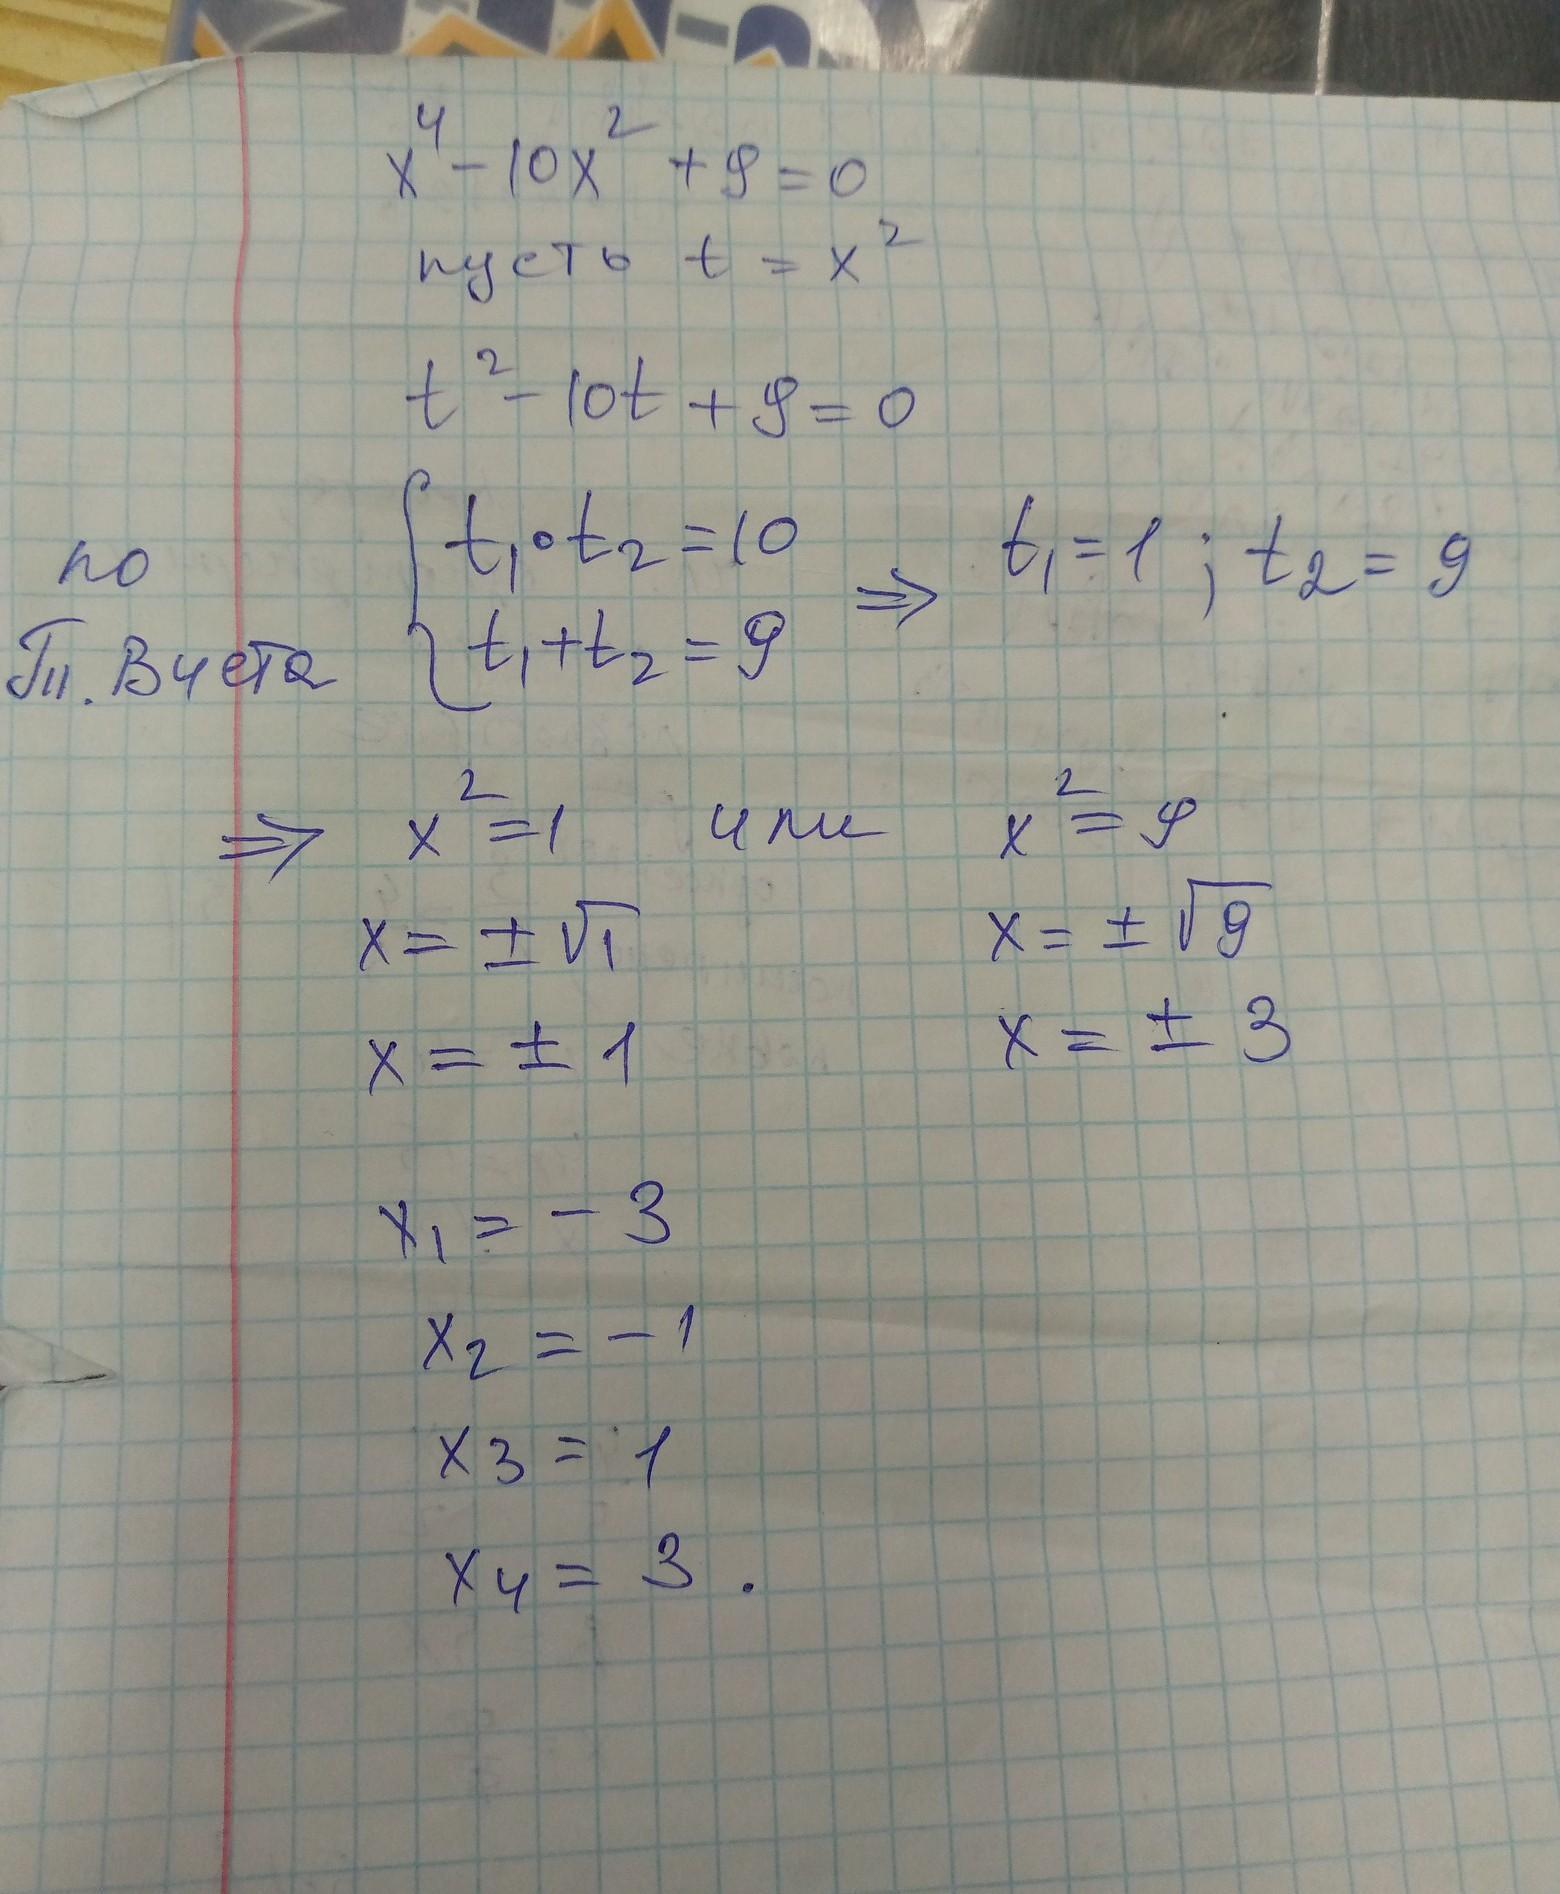 x⁴ - 10x² + 9 = 0
пусть t = x²
t² - 10t + 9 = 0
по т. Виета { t₁ • t₂ = 10
t₁ + t₂ = 9 ⇒ t₁ = 1 ; t₂ = 9
⇒ x² = 1 или x² = 9
x = ± √1 x = ± √9
x = ± 1 x = ± 3
x₁ = - 3
x₂ = - 1
x₃ = 1
x₄ = 3 .